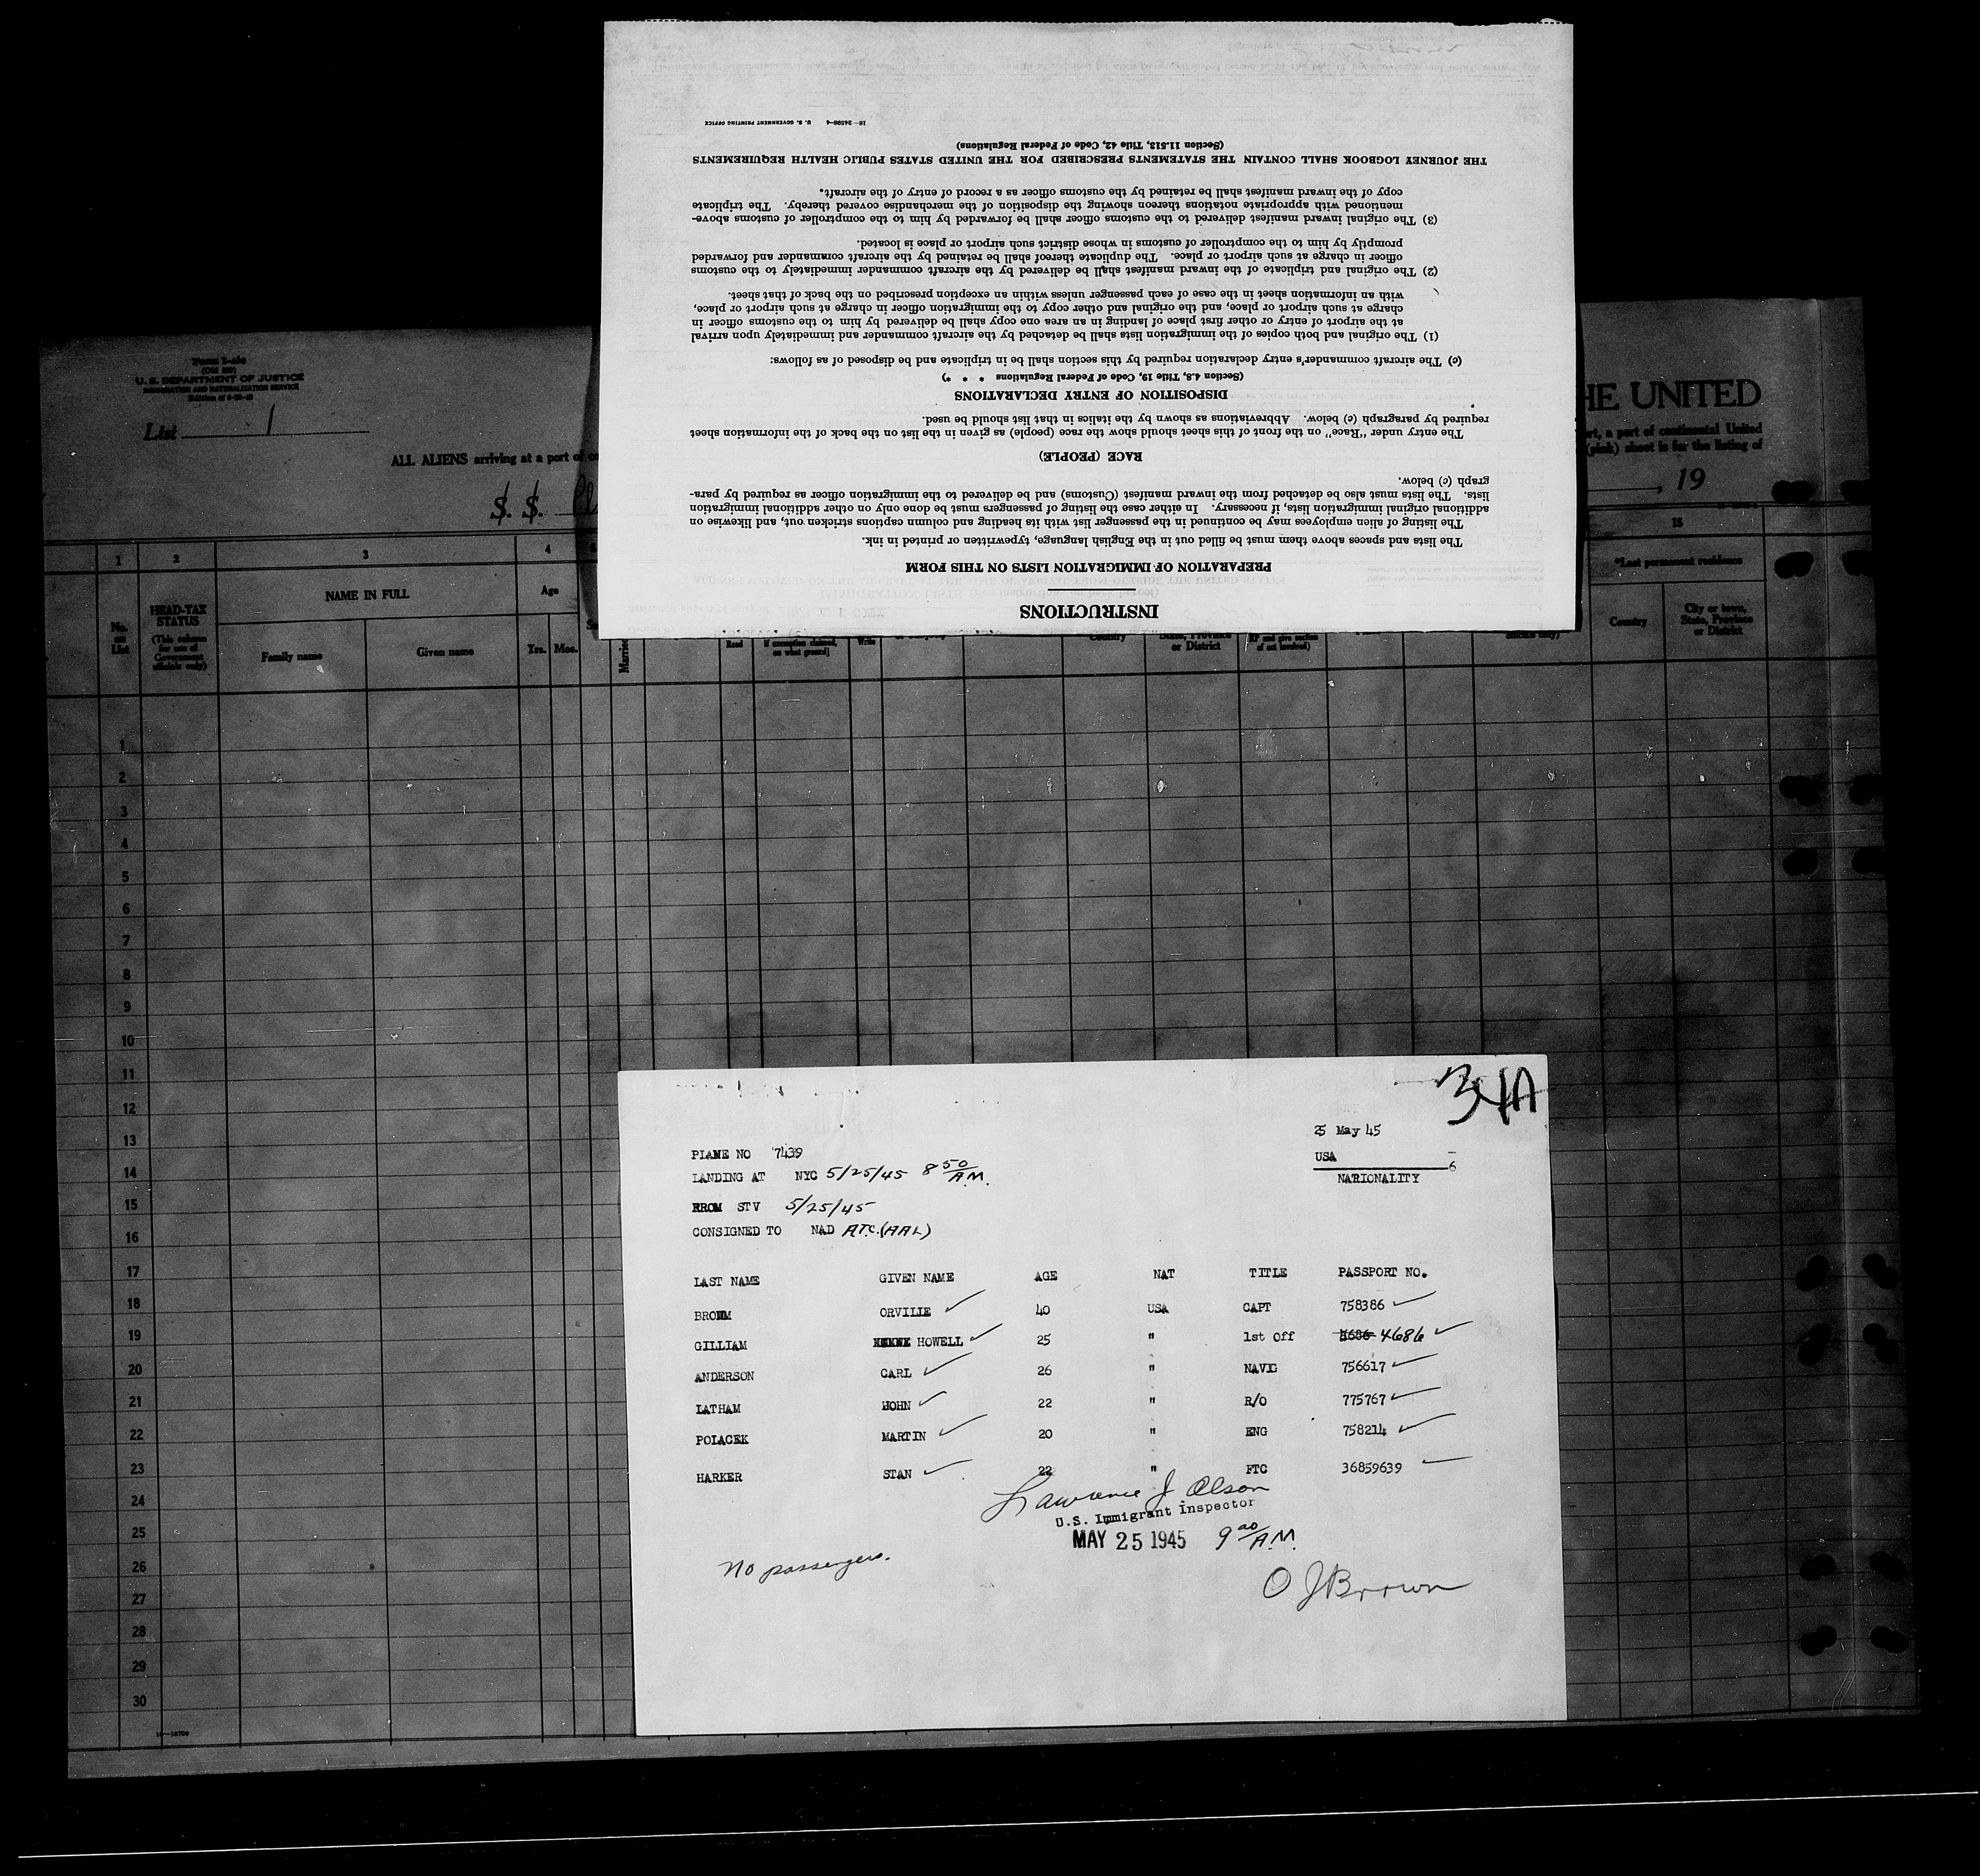 INSTRUCTIONS
PREPARATION OF IMMIGRATION LISTS ON THIS FORM
The lists and spaces above them must be filled out in the English language, typewritten or printed in ink.
The listing of alien employees may be continued in the passenger list with its heading and column captions stricken out, and likewise on
additional original immigration lists, if necessary. In either case the listing of passengers must be done only on other additional immigration
lists. The lists must also be detached from the inward manifest (Customs) and be delivered to the immigration officer as required by para-
graph (c) below.
RACE (PEOPLE)
The entry under "Race" on the front of this sheet should show the race (people) as given in the list on the back of the information sheet
required by paragraph (c) below. Abbreviations as shown by the italics in that list should be used.
DISPOSITION OF ENTRY DECLARATIONS
(Section 4.8, Title 19, Code of Federal Regulations * * *)
(c) The aircraft commander's entry declaration required by this section shall be in triplicate and be disposed of as follows:
(1) The original and both copies of the immigration lists shall be detached by the aircraft commander and immediately upon arrival
at the airport of entry or other first place of landing in an area one copy shall be delivered by him to the customs officer in
charge at such airport or place, and the original and other copy to the immigration officer in charge at such airport or place,
with an information sheet in the case of each passenger unless within an exception prescribed on the back of that sheet.
(2) The original and triplicate of the inward manifest shall be delivered by the aircraft commander immediately to the customs
officer in charge at such airport or place. The duplicate thereof shall be retained by the aircraft commander and forwarded
promptly by him to the comptroller of customs in whose district such airport or place is located.
(3) The original inward manifest delivered to the customs officer shall be forwarded by him to the comptroller of customs above-
mentioned with appropriate notations thereon showing the disposition of the merchandise covered thereby. The triplicate
copy of the inward manifest shall be retained by the customs officer as a record of entry of the aircraft.
THE JOURNEY LOGBOOK SHALL CONTAIN THE STATEMENTS PRESCRIBED FOR THE UNITED STATES PUBLIC HEALTH REQUIREMENTS
(Section 11.513, Title 42, Code of Federal Regulations)
16—24598-4 U. S. GOVERNMENT PRINTING OFFICE
U. S. DEPARTMENT OF JUSTICE
IMMIGRATION AND NATURALIZATION SERVICE
List 1
HE UNITED
rt, a part of continental United
(pink) sheet is for the listing of
ALL ALIENS arriving at a port of
, 19
S. S.
1 2 3 4 15
HEAD-TAX STATUS
(This column for use of Government officials only)
NAME IN FULL
Age
*Last permanent residence
No. on List
Family name Given name Yrs. Mos. Married
Read
if exemption claimed, on what ground]
Write
Country
State, Province or District
Country
City or town, State, Province or District
1
2
3
4
5
6
7
8
9
10
11
12
13
14
15
16
17
18
19
20
21
22
23
24
25
26
27
28
29
30
34A
25 May 45
PLANE NO 7439
USA 6
LANDING AT NYC 5/25/45 8 50 A.M.
NATIONALITY
FROM STV 5/25/45
CONSIGNED TO NAD ATC.(AAL)
LAST NAME GIVEN NAME AGE NAT TITLE PASSPORT NO.
BROWN ORVILLE 40 USA CAPT 758386
GILLIAM HOWELL 25 " 1st Off 4686
ANDERSON CARL 26 " NAVIG 756617
LATHAM JOHN 22 " R/O 775767
POLACEK MARTIN 20 " ENG 758214
HARKER STAN 22 " FTC 36859639
Lawrence J Olson
U.S. Immigrant Inspector
MAY 25 1945 9 00 A.M.
No passengers.
O J Brown